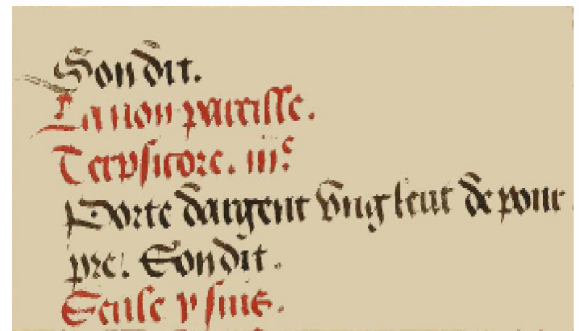 Son dit.
La non pareille.
Terpsicore. iiiᵉ
Porte dargent vng leut de pour
pre. Son dit.
Seule y suis.